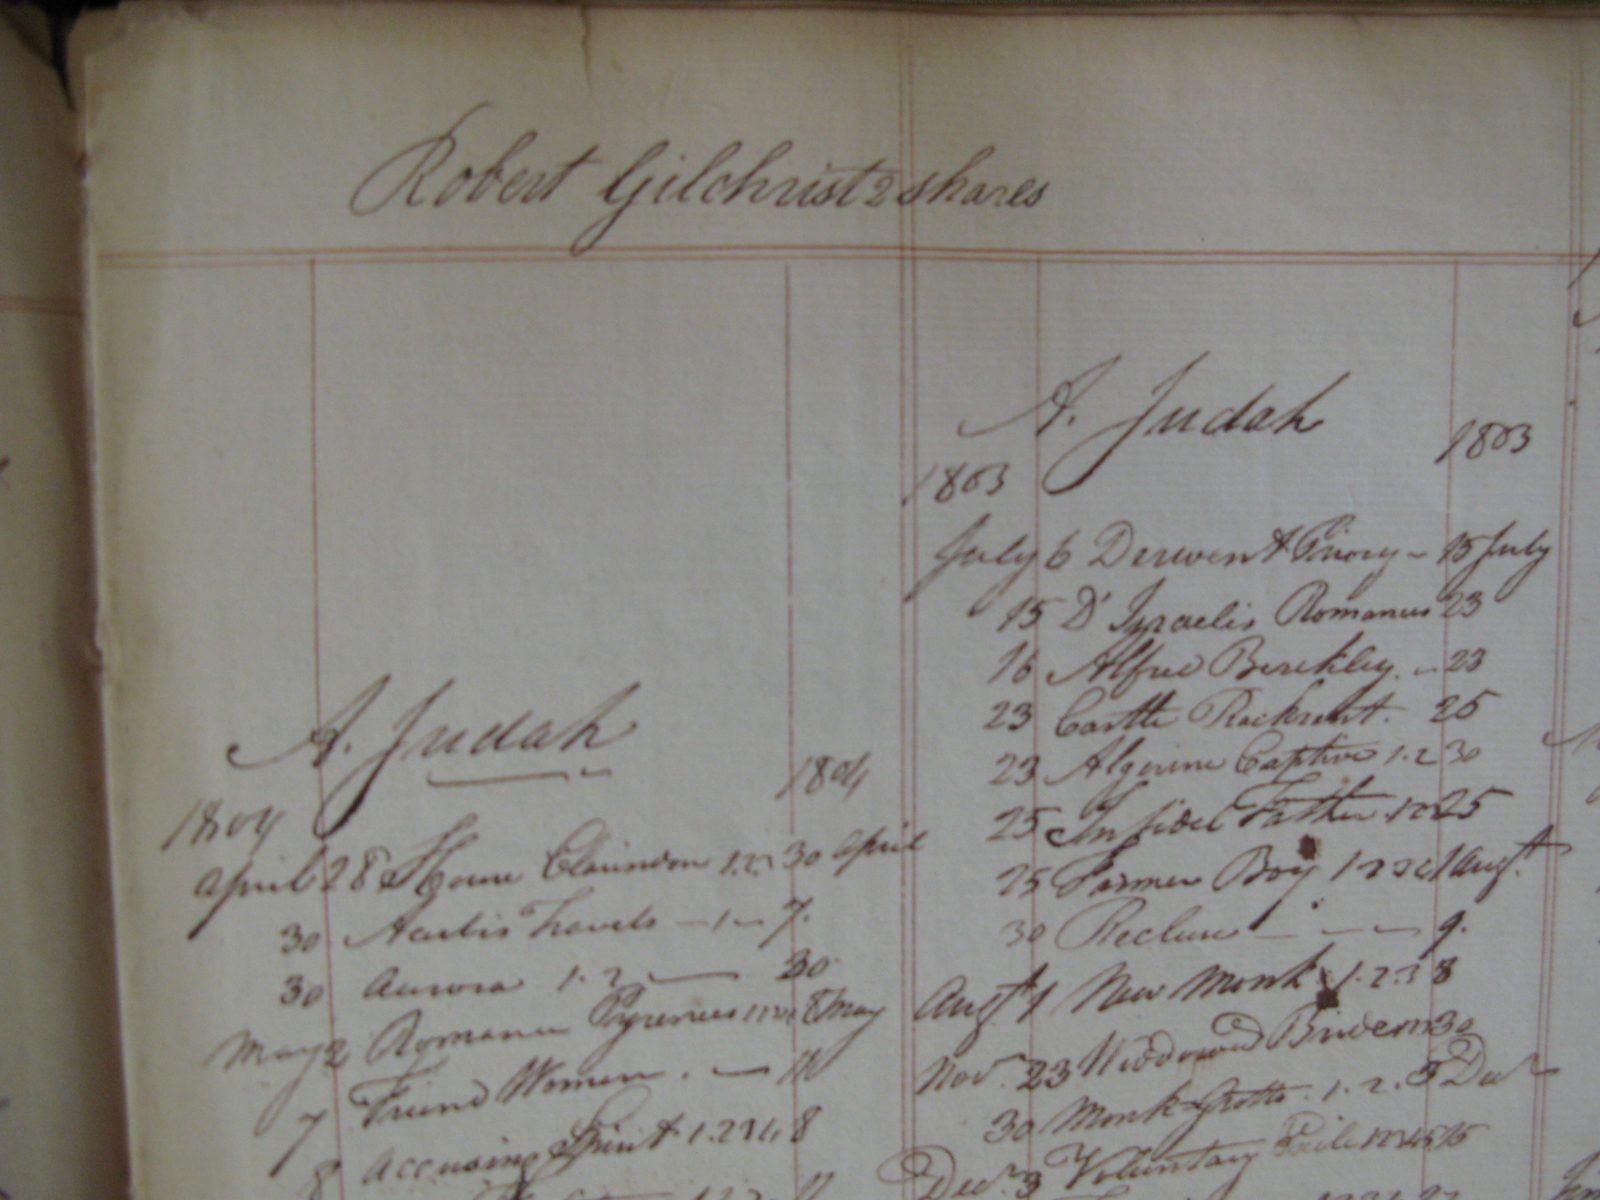 Robert Gilchrist 2 shares
A. Judah
1804 1804
April 28 House Clarindon 1.2. 30 April
30 Acerbis Travels — 1 — 7.
30 Aurora 1. 2. — 30
May 2 Romance Pyrenees 8 May
7 Friend Women . — 11
8 Accusing Spirit 1.2 3 4 8
A. Judah
1803 1803
July 6 Derwent Priory ~ 15 July
15 D' Israelis Romances 23
16 Alfred Berekley. ~ 23
23 Castle Rackrent. 25
23 Algerine Captive 1.2 30
25 Infidel Father 25
25 Farmer Boy 1 Augt
30 Recluse — — — 9.
Augt 1 New Monk 1.2.3 8
Nov. 23 Widowed Bride 30
30 Monk Grotto. 1. 2. 3 Dec
Decr. 3 Voluntary Exile 15